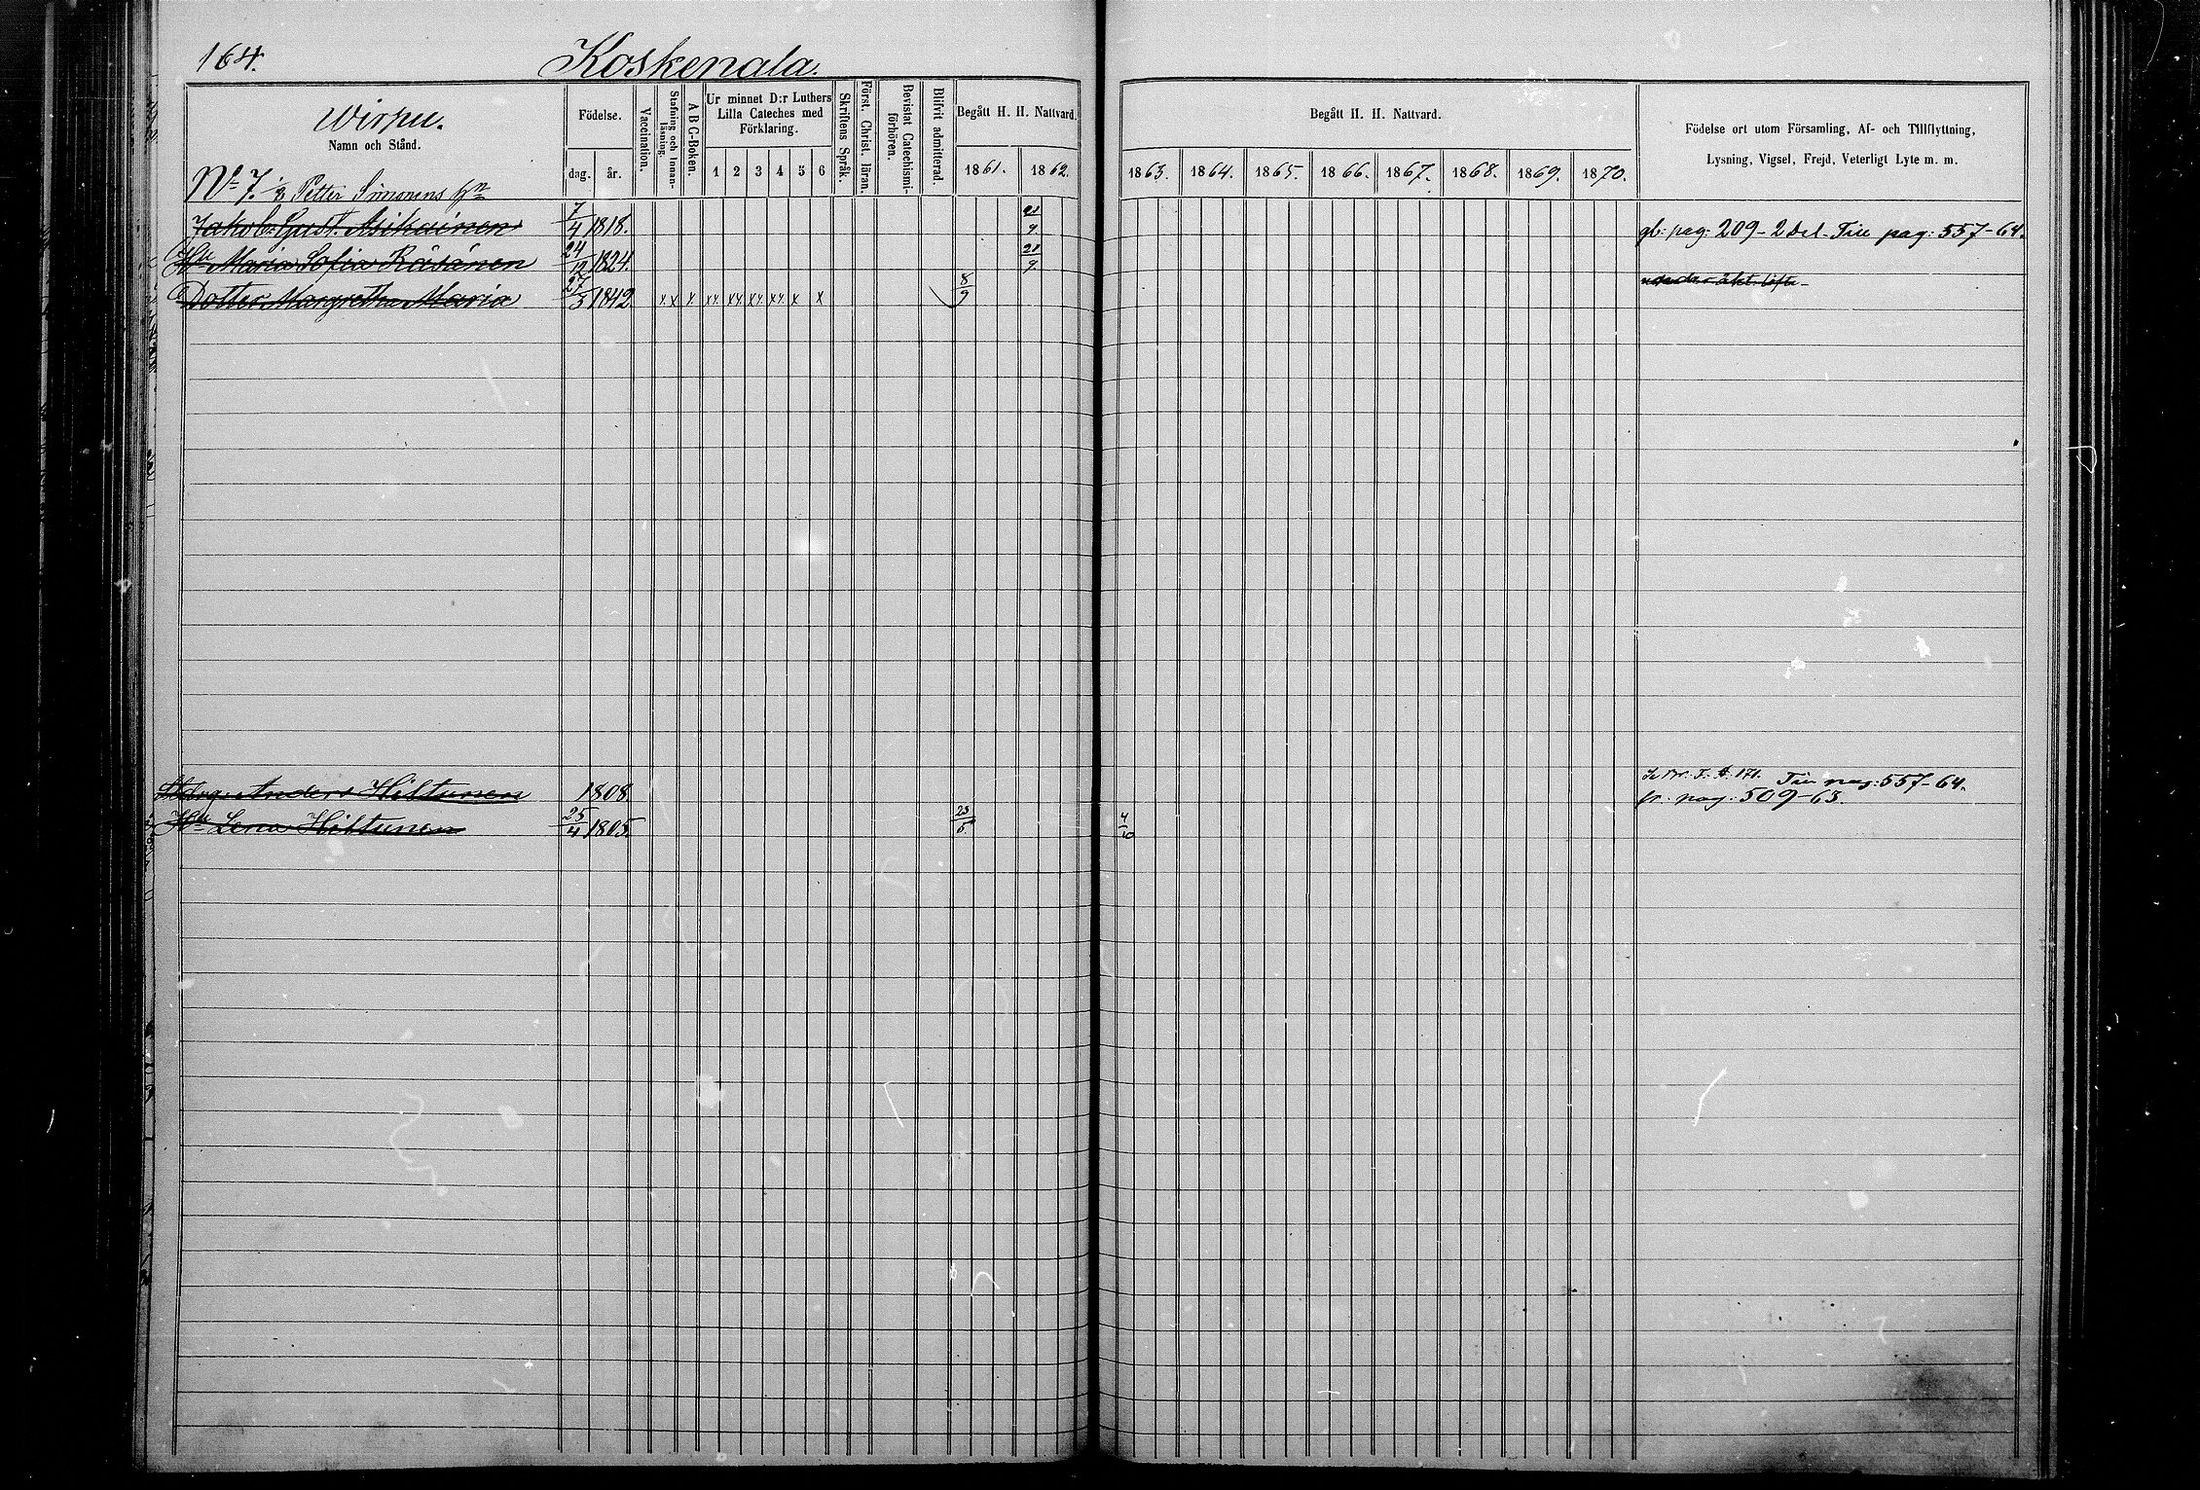 164.
Koskenala.
Wirpu.
Namn och Stånd.
Födelse.
dag. år.
Vaccination.
Stafning och Innanläsning.
A B C-Boken.
Ur minnet D:r Luthers Lilla Cateches med Förklaring.
1 2 3 4 5 6
Skriftens Språk.
Först. Christ. läran.
Bevistat Catechismiförhören.
Blifvit admitterad.
Begått H. H. Nattvard.
1861. 1862.
Begått H. H. Nattvard.
1863. 1864. 1865. 1866. 1867. 1868. 1869. 1870.
Födelse ort utom Församling, Af- och Tillflyttning,
Lysning, Vigsel, Frejd, Veterligt Lyte m. m.
No 7. Petter Simonens
Jakob Gust. Asikainen 7/4 1818. pag: 209 - 2 Del. Tin pag: 557-64.
Maria Sofia Räsänen 24/12 1824.
Dotter Margretha Maria 27/3 1842 x x x xx xx xx xx x x 8/9
Anders Hiltunen 1808. Tin pag: 557-64.
fr. pag: 509-63.
Lena Hiltunen 25/4 1805. 23/6 4/10